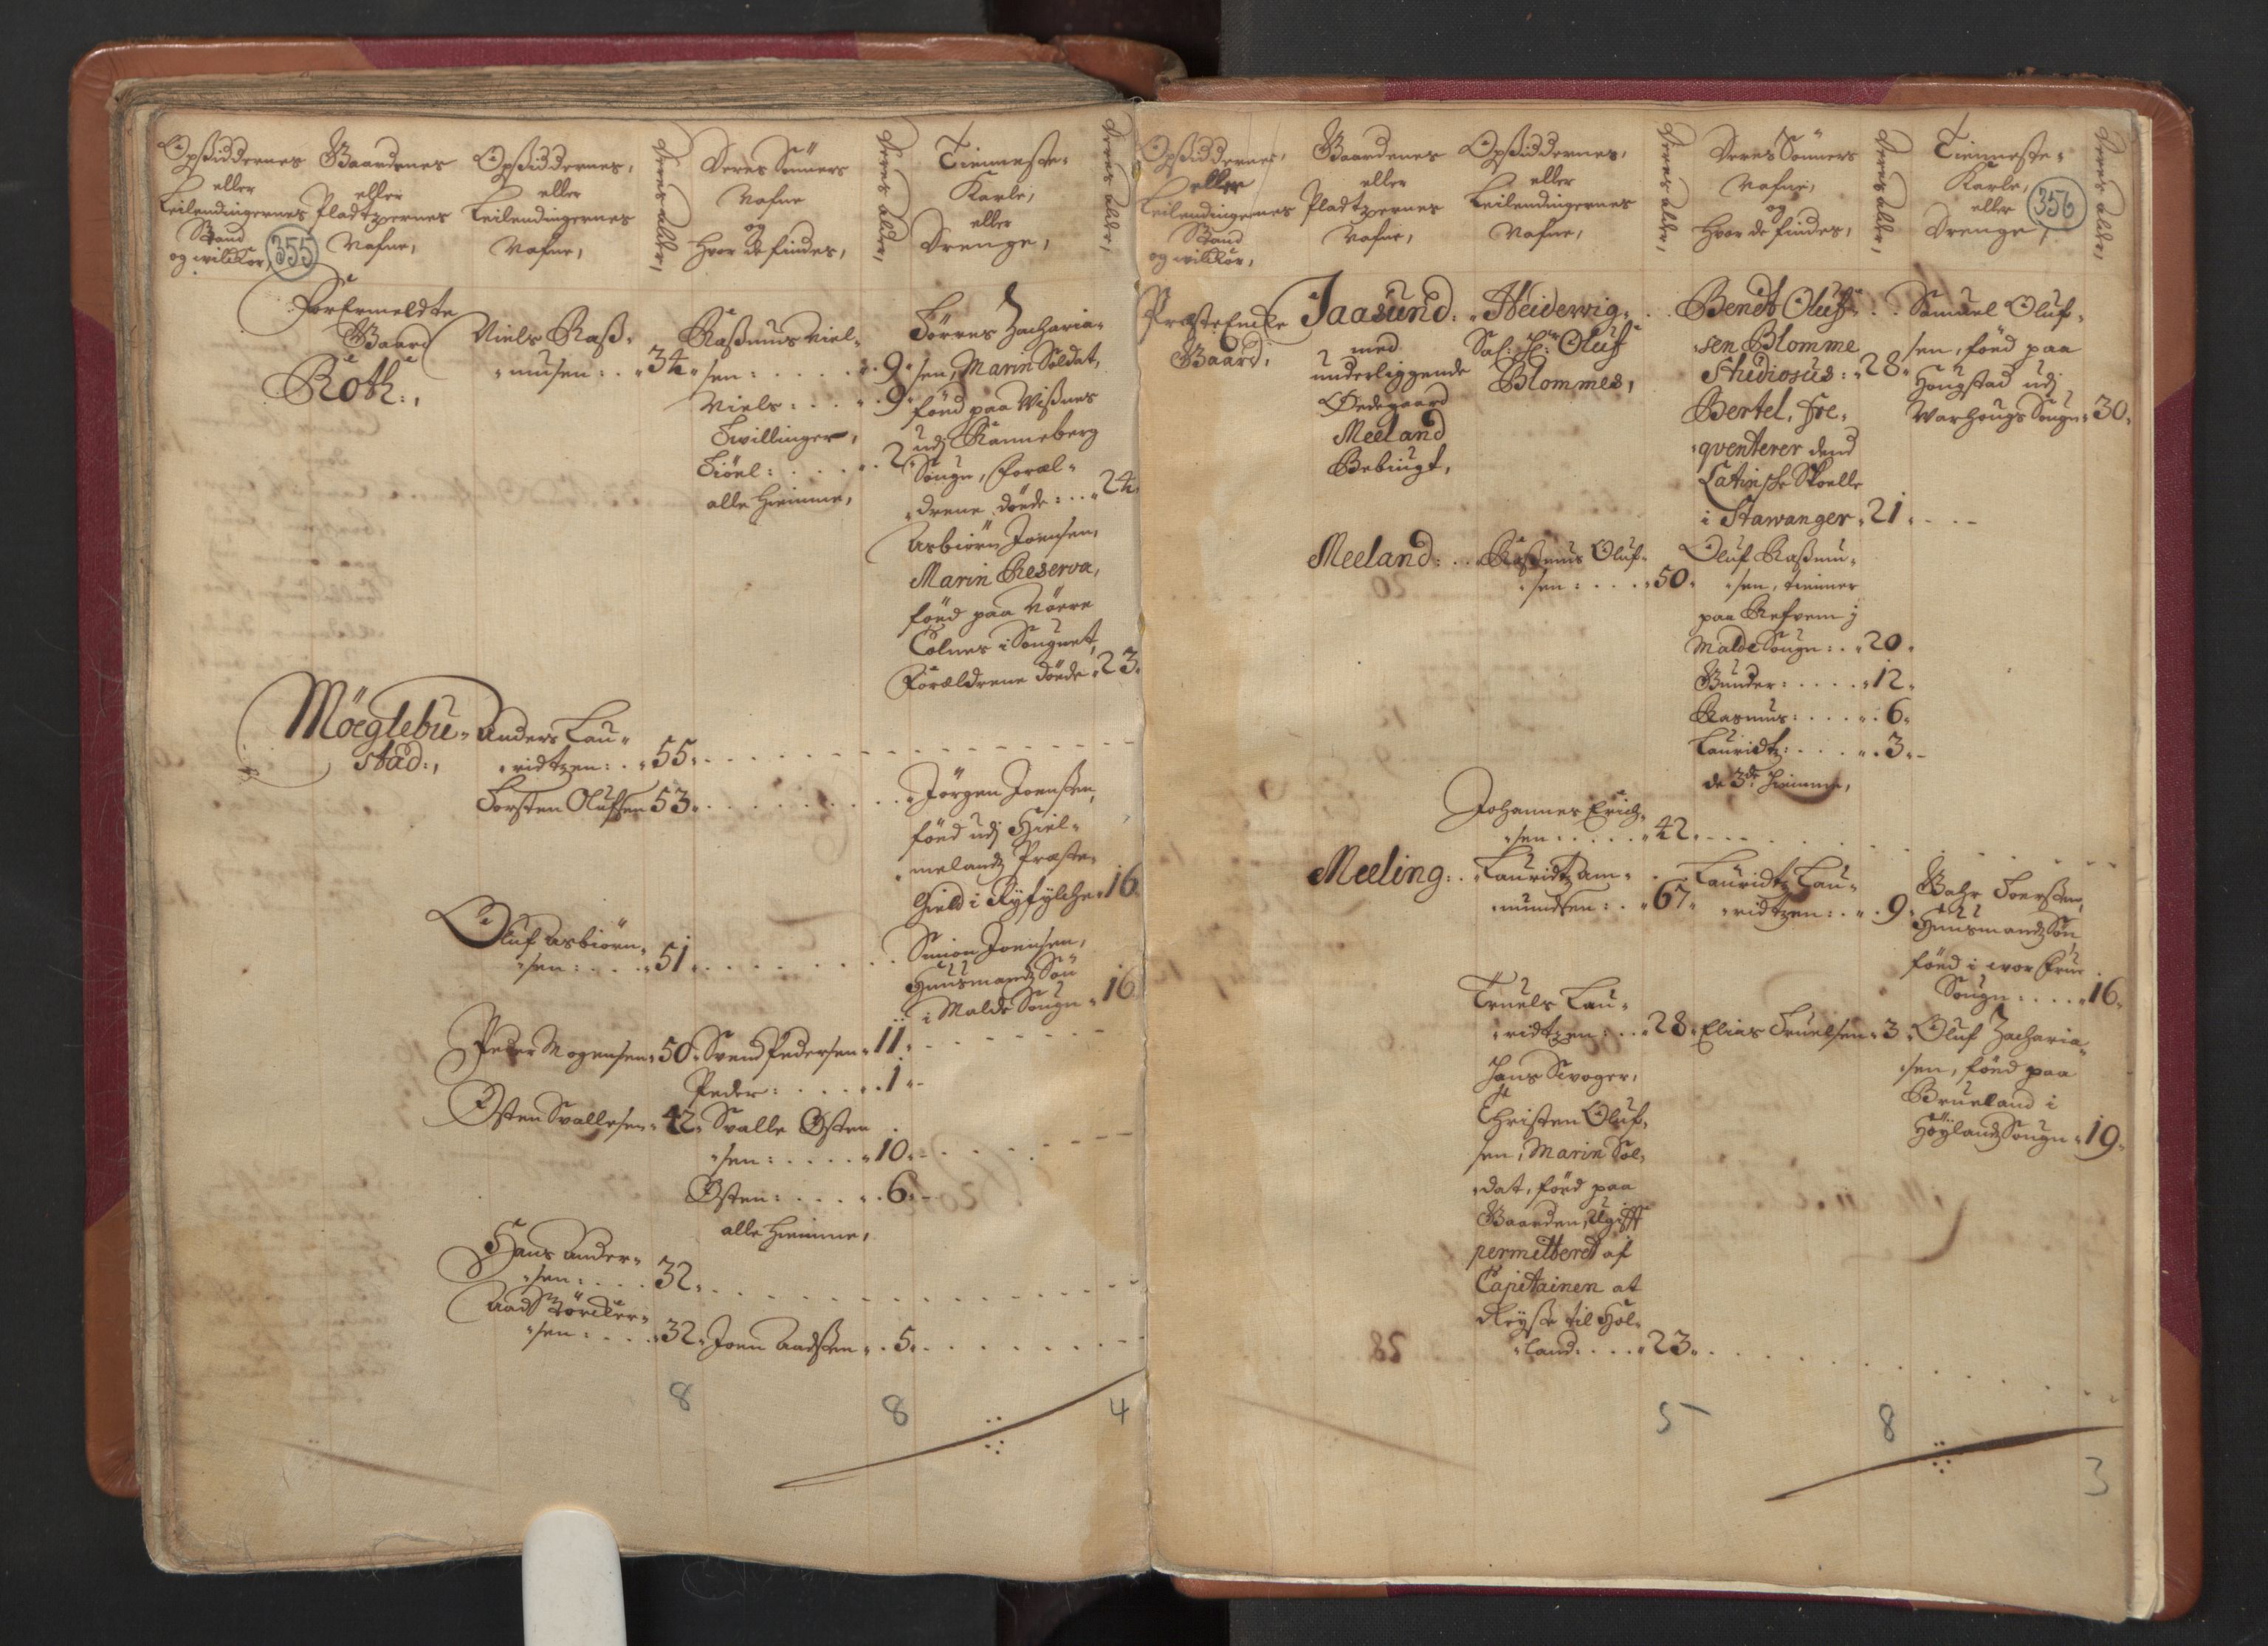 Opßiddernes
eller
Leilendingernes
Stand
og wilkor,
355
Gaardenes
eller
Pladtzernes
Nafne,
Opßiddernes,
eller
Leilendingernes
Nafne,
Deres alder,
Deres Sönners
Nafne
og
Hvor de findes,
Deres alder,
Tienneste-
Karle,
eller
Drenge,
Deres alder,
Forermeldte
Gaard
Roth:,
Niels Raß-
musen: 34
Raßmus Niel-
sen: 9
Niels: 9
Twillinger,
Tiöel: 2
alle hiemme,
Törres Zacharia-
sen, Marin Soldat,
föed paa Wißnes
udj Ranneberg
Sougn, Foræl-
drene döede: 24
Asbiörn Joensen,
Marin Reserva,
föed paa Nöere
Tolnes i Sougnet,
Forældrene döede 23
Möeglebu-
stad:,
Anders Lau-
ridtzen: 55
Torsten Olufsen 53
Jörgen Joenßen,
föed udj Hiel-
melandz Præste-
Gield i Ryfylche 16
Oluf Asbiörn-
sen: 51
Simon Joensen,
Huusmandz Sön
i Malde Sougn 16
Peder Mogensen 50
Svend Pedersen 11
Peder: 1
Östen Svallesen 42
Svalle Östen
sen: 10
Östen: 6
alle hiemme,
Hans Ander-
sen: 32
Aad Törcker-
sen: 32
Joen Aadßen 5
8 8 4
Opßiddernes,
eller
Leilendingernes
Stand
og wilkor,
Gaardenes
eller
Pladtzernes
Nafne,
Opßiddernes,
eller
Leilendingernes
Nafne,
Deres alder,
Deres Sönners
Nafne,
og
Hvor de findes,
Deres alder,
Tienneste-
Karle,
eller
Drenge,
356
Deres alder,
Præste Encke
Gaard,
Jaasund:
med
underliggende
Ödegaard
Meeland
Bebiugt,
Heidewig
Sal: H: Oluf
Blommes,
Bendt Oluf-
sen Blomme
Studiosus: 28
Bertel, fre-
qventerer dend
Latinsche Skoelle
i Stawanger 21
Samuel Oluf-
sen, föed paa
Hougstad udj
Warhougs Sougn 30
Meeland:
Raßmus Oluf-
sen: 50
Oluf Raßmu-
sen, tienner
paa Refvem j
Malde Sougn: 20
Gunder: 12
Rasmus: 6
Lauridtz: 3
de 3de hiemme,
Johannes Erich-
sen: 42
Meeling:
Lauridtz Am-
mundsen: 67
Lauridtz Lau-
ridtzen: 9
Gahr Toerßen,
Huusmandz Sön
föed i wor Frue
Sougn: 16
Truels Lau-
ridtzen: 28
Elias Truelsen 3
Oluf Zacharia-
sen, föed paa
Brueland i
Höylandz Sougn 19
Hans Svoger,
Christen Oluf-
sen, Marin Sol-
dat, föed paa
Gaarden, Ugift
permitteret af
Capitainen at
Reyße til Hol-
land: 23
5 8
3